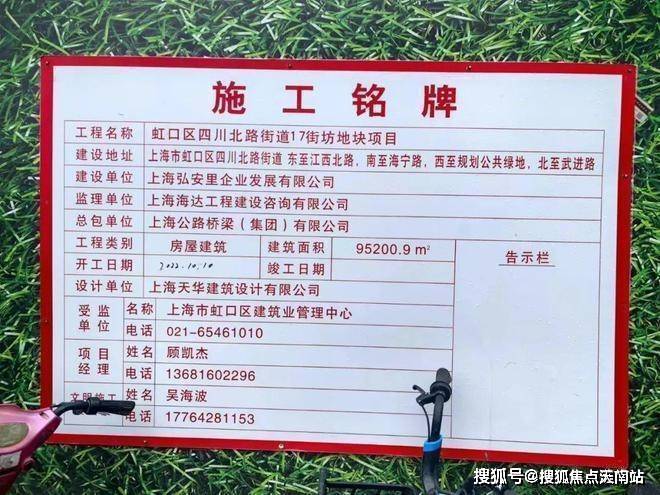 施工铭牌
工程名称 虹口区四川北路街道17街坊地块项目
建设地址 上海市虹口区四川北路街道 东至江西北路，南至海宁路，西至规划公共绿地，北至武进路
建设单位 上海弘安里企业发展有限公司
监理单位 上海海达工程建设咨询有限公司
总包单位 上海公路桥梁（集团）有限公司
工程类别 房屋建筑 建筑面积 95200.9 m²
告示栏
开工日期 2022.10.10 竣工日期
设计单位 上海天华建筑设计有限公司
受监单位 名称 上海市虹口区建筑业管理中心
电话 021-65461010
项目经理 姓名 顾凯杰
电话 13681602296
文明施工 姓名 吴海波
电话 17764281153
搜狐号@搜狐焦点滨南站